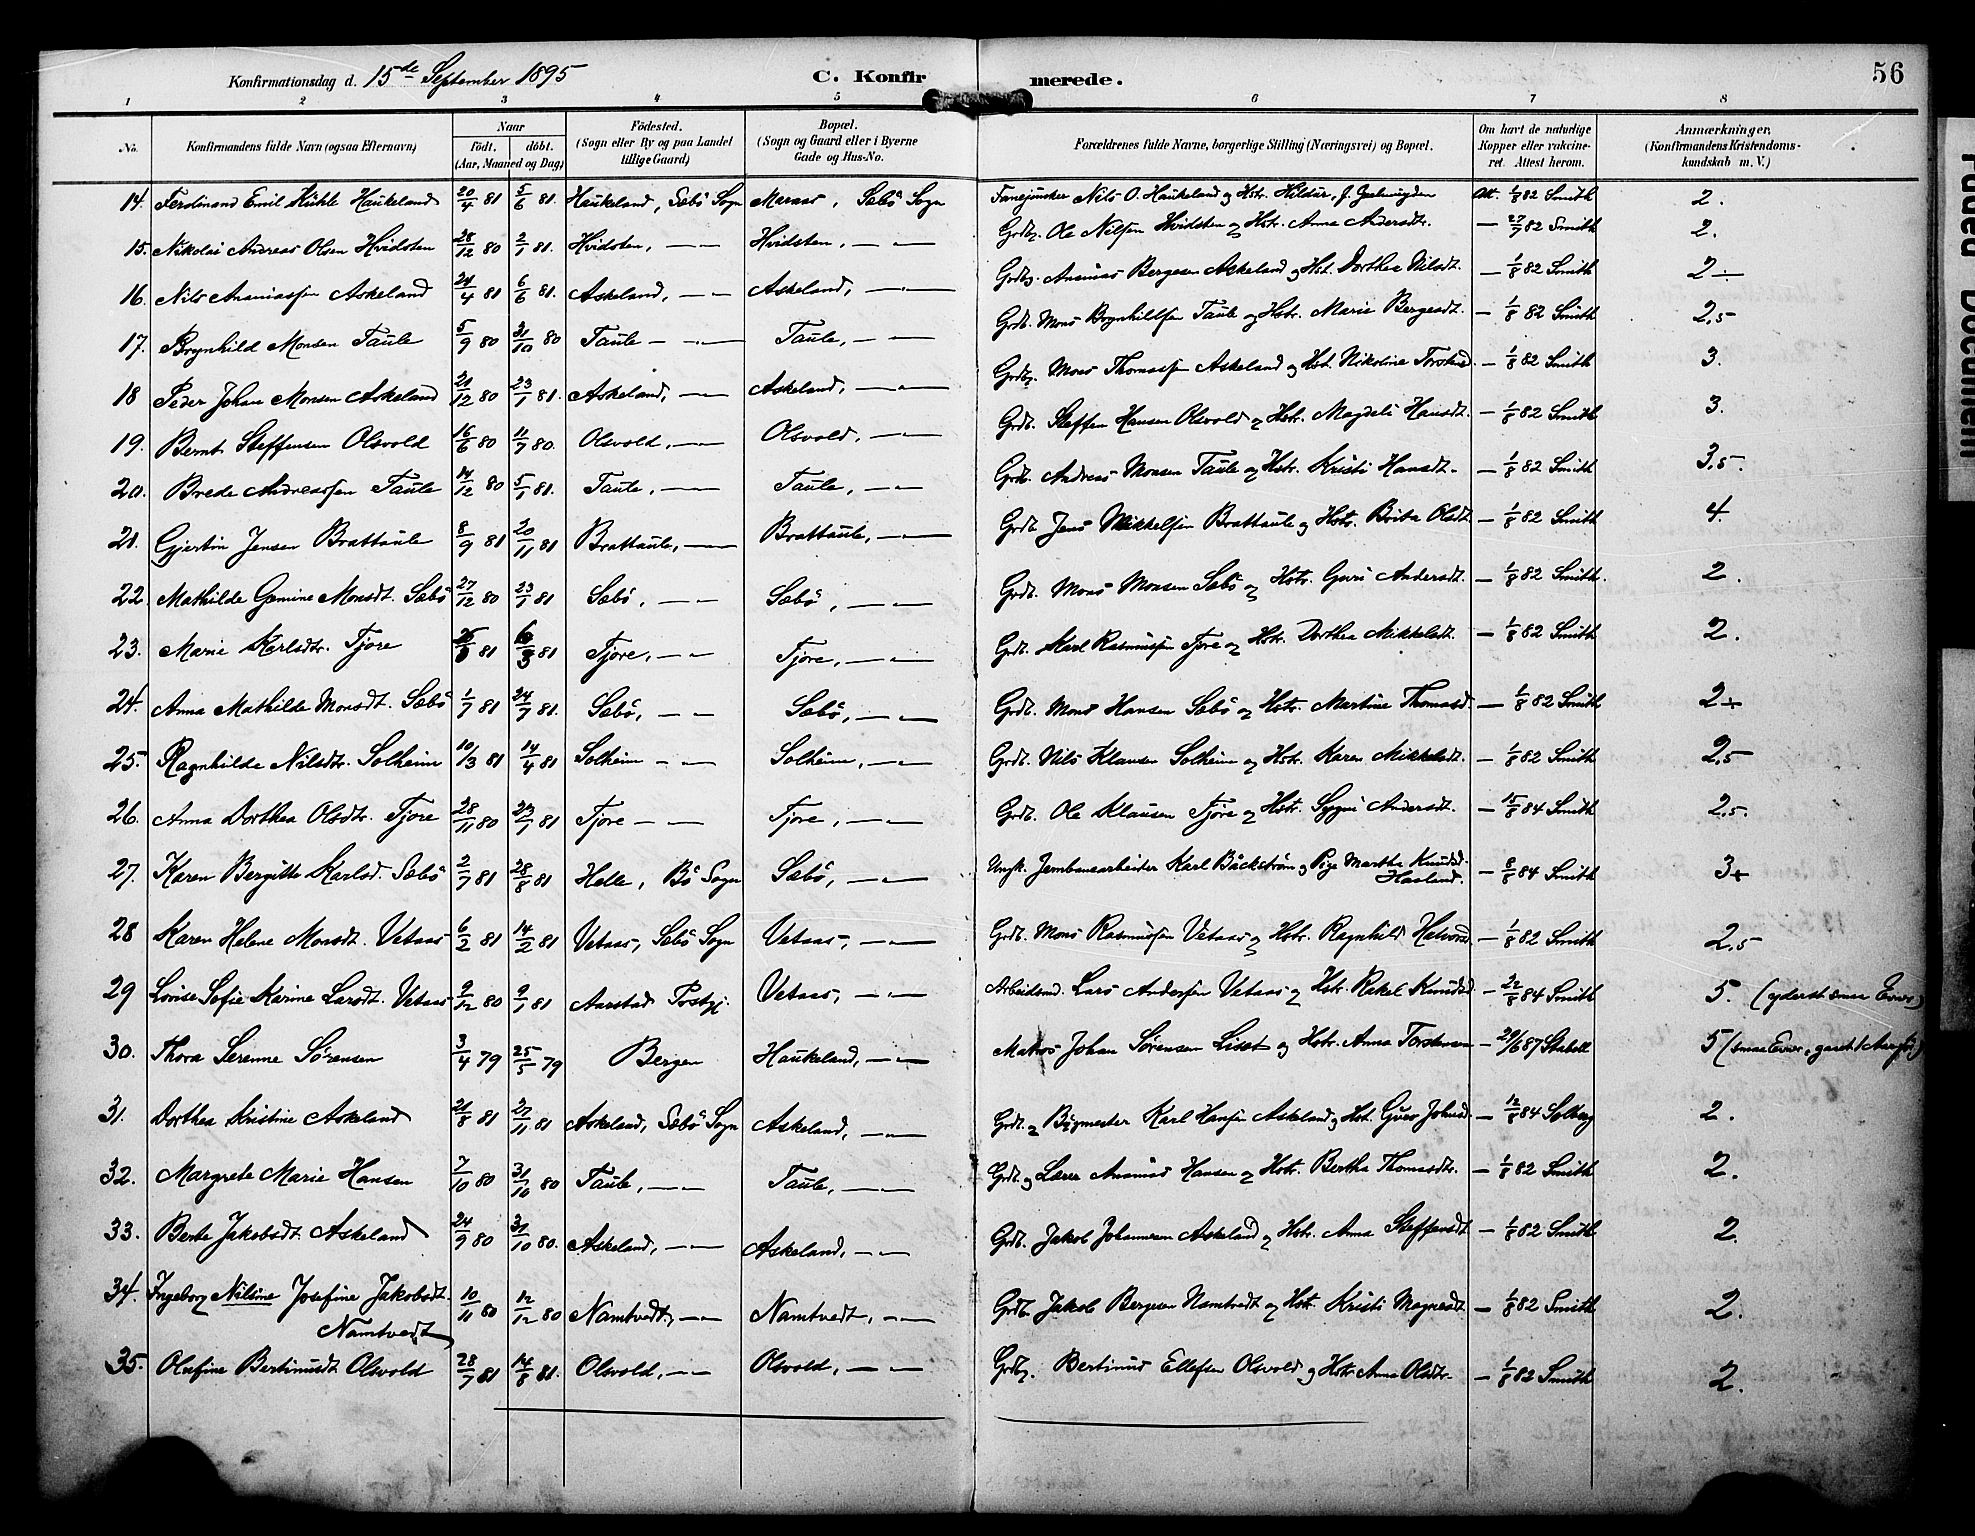 Konfirmationsdag d. 15de September 1895 C. Konfirmerede. 56
1 2 3 4 5 6 7 8
No. Konfirmandens fulde Navn (ogsaa Efternavn) Naar födt. döbt. (Aar, Maaned og Dag) Födested. (Sogn eller By og paa Landet tillige Gaard) Bopæl. (Sogn og Gaard eller i Byerne Gade og Hus-No. Forældrenes fulde Navne, borgerlige Stilling (Næringsvei) og Bopæl. Om havt de naturlige Kopper eller vakcineret. Attest herom. Anmærkninger, (Konfirmandens Kristendomskundskab m. V.)
14. Ferdinand Emil Kühle Haukeland 20/4 81 5/6 81. Haukeland, Sæbö Sogn Maraas, Sæbö Sogn Fanejunker Nils O. Haukeland og Hstr. Hildur, J. Att. 1/8 82 Smith 2.
15. Nikolai Andreas Olsen Hvidsten 28/12 80 2/1 81. Hvidsten, — „ — Hvidsten, — „ — Grdbg. Ole Nilsen Hvidsten og Hstr. Anna Andersdtr. — 27/7 82 Smith 2.
16. Nils Ananiassen Askeland 21/4 81 6/6 81. Askeland, — „ — Askeland, — „ — Grdbg. Ananias Bergesen Askeland og Hst. Dorthea Nilsdt. — 1/8 82 Smith 2 ÷
17. Brynhild Monsen Taule 5/9 80 31/10 80 Taule — „ — Taule, — „ — Grdb. Mons Brynhildsen Taule og Hstr. Marie Bergesdt. — 1/8 82 Smith 2,5
18 Peder Johan Monsen Askeland 21/12 80 23/1 81. Askeland, — „ — Askeland, — „ — Grdbg. Mons Thomassen Askeland og Hst. Nikoline Torstensd. — 1/8 82 Smith 3.
19. Bernt Steffensen Olsvold 16/6 80 11/7 80. Olsvold, — „ — Olsvold, — „ — Grdb. Steffen Hansen Olsvold og Hstr. Magdeli Hansdt. — 1/8 82 Smith 3.
20. Brede Andreassen Taule 14/12 80 5/1 81. Taule, — „ — Taule, — „ — Grdb. Andreas Monsen Taule og Hstr. Kristi Hansdt. — 1/8 82 Smith 3,5.
21. Gjertin Jensen Brattaule 8/9 81 20/11 81 Brattaule, — „ — Brattaule, — „ — Grdb. Jens Mikkelsen Brattaule og Hstr. Brita Olsdt — 1/8 82 Smith 4.
22. Mathilde Gemine Monsdt. Sæbö 27/12 80 23/1 81 Sæbö, — „ — Sæbö, — „ — Grdb. Mons Monsen Sæbö og Hstr. Guri Andersdt. — 1/8 82 Smith. 2.
23. Marie Karlsdtr. Tjore 81 6/3 81 Tjore, — „ — Tjore, — „ — Grdb. Karl Rasmussen Tjore og Hstr. Dorthea Mikkelsdt. — 1/8 82 Smith 2.
24. Anna Mathilde Monsdt. Sæbö 1/7 81 24/7 81. Sæbö, — „ — Sæbö, — „ — Grdb. Mons Hansen Sæbö og Hstr. Martine Thomasd. — 1/8 82 Smith 2 +
25. Ragnhilde Nilsdtr. Solheim 10/3 81 14/4 81 Solheim — „ — Solheim, — „ — Grdb. Nils Klausen Solheim og Hstr. Karen Mikkelsdt. — 1/8 82 Smith 2,5
26. Anna Dorthea Olsdtr. Tjore 28/11 80 23/1 81 Tjore — „ — Tjore, — „ — Grdb. Ole Klausen Tjore og Hstr. Sygni Andersdt. — 15/8 84 Smith 2,5.
27. Karen Bergitte Karlsd. Sæbö 2/7 81 28/8 81 Helle, Bö Sogn Sæbö, — „ — Ungk. Jernbanearbeiter Karl Bäckström og Pige Martha Knudsd. Hasland. — 8/8 84 Smith 3 +
28 Karen Helene Monsdt. Vetaas 6/2 81 14/2 81 Vetaas, Sæbö Sogn Vetaas, — „ — Grdb. Mons Rasmussen Vetaas og Hstr. Ragnhild Halvorsd. — 1/8 82 Smith 2,5
29 Lovise Sofie Karine Larsdt. Vetaas 9/12 80 9/1 81 Aarstad Prstgj. Vetaas, — „ — Arbeidsmd. Lars Andersen Vetaas og Hstr. Rakel Knudsd. — 22/8 84 Smith 5. (yderst smaa Evner)
30. Thora Serenne Sörensen 3/4 79 25/5 79 Bergen Haukeland, — „ — Matros Johan Sörensen Liset og Hstr. Anna Torstensen — 29/6 87 Stabell 5 (smaa Evner,
31. Dorthea Kristine Askeland 21/8 81 27/11 81 Askeland, Sæbö Sogn Askeland, — „ — Grdb. og Bygmester Karl Hansen Askeland og Hst. Guro Johnsd. — 12/8 84 Solberg 2.
32. Margrete Marie Hansen 7/10 80 31/10 80 Taule, — „ — Taule, — „ — Grdb. og Lærer Ananias Hansen og Hstr. Bertha Thomasdtr. — 1/8 82 Smith 2.
33. Berte Jakobsdt. Askeland 24/9 80 31/10 80. Askeland, — „ — Askeland, — „ — Grdb. Jakob Johannesen Askeland og Hstr. Anna Steffensdt — 1/8 82 Smith 2.
34. Ingeborg Nilsine Josefine Jakobsdt. Namtvedt 10/11 80 12/12 80 Namtvedt, — „ — Namtvedt, — „ — Grdb. Jakob Bergesen Namtvedt og Hstr. Kristi Magnesdt — 1/8 82 Smith 2.
35. Olufine Bertinusdt. Olsvold 28/7 81 14/8 81. Olsvold, — „ — Olsvold, — „ — Grdbg. Bertinus Ellefsen Olsvold og Hstr. Anna Olsdtr. — 1/8 82 Smith 2.
Faded Document